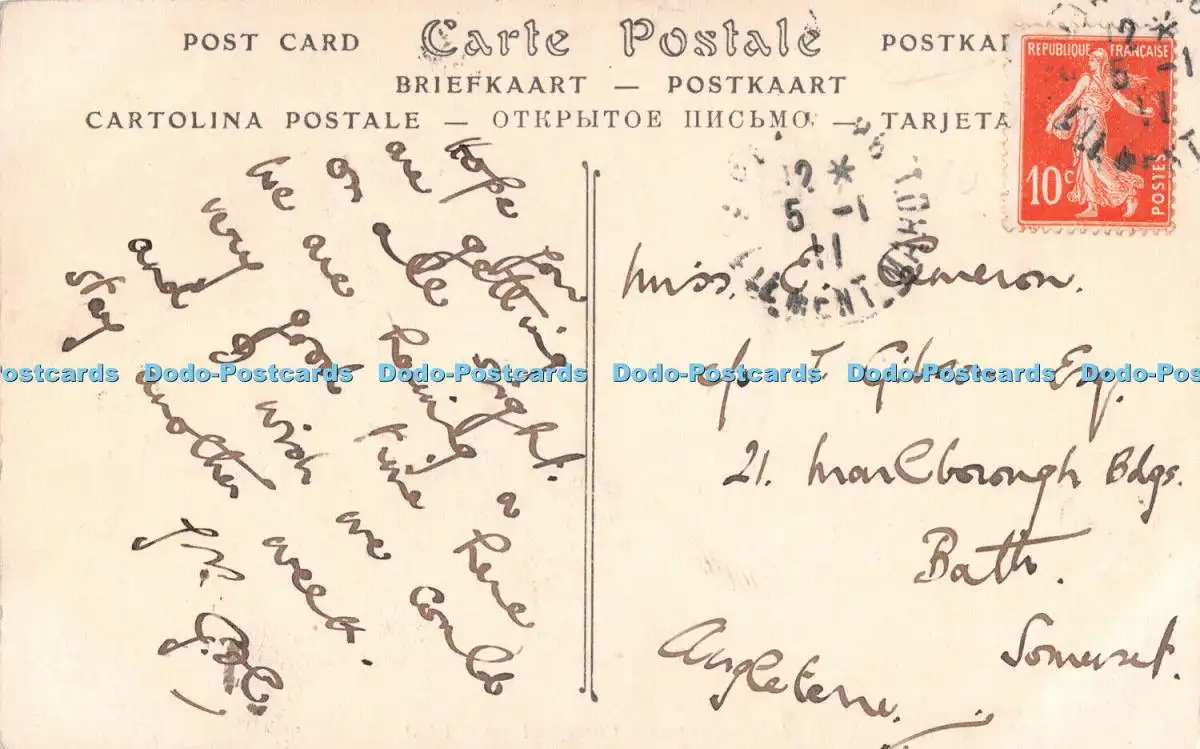 POST CARD Carte Postale POSTKA
BRIEFKAART — POSTKAART
CARTOLINA POSTALE — ОТКРЫТОЕ ПИСЬМО — TARJETA
REPUBLIQUE FRANÇAISE
10c POSTES
12 *
5 -1
11
12 *
5 -1
11
Hope you
are getting
on all right.
We are having a
very good time here
and I wish we could
stay another week.
Miss. E. Cameron.
c/o F Gibson Esq.
21. Marlborough Bdgs.
Bath.
Somerset.
Angleterre.
Dodo-Postcards Dodo-Postcards Dodo-Postcards Dodo-Postcards Dodo-Postcards Dodo-Postcards